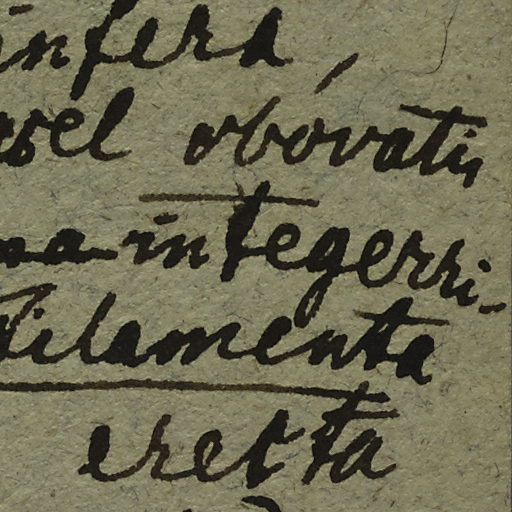 infera,
vel obovatis
integerri-
Filamenta
erecta